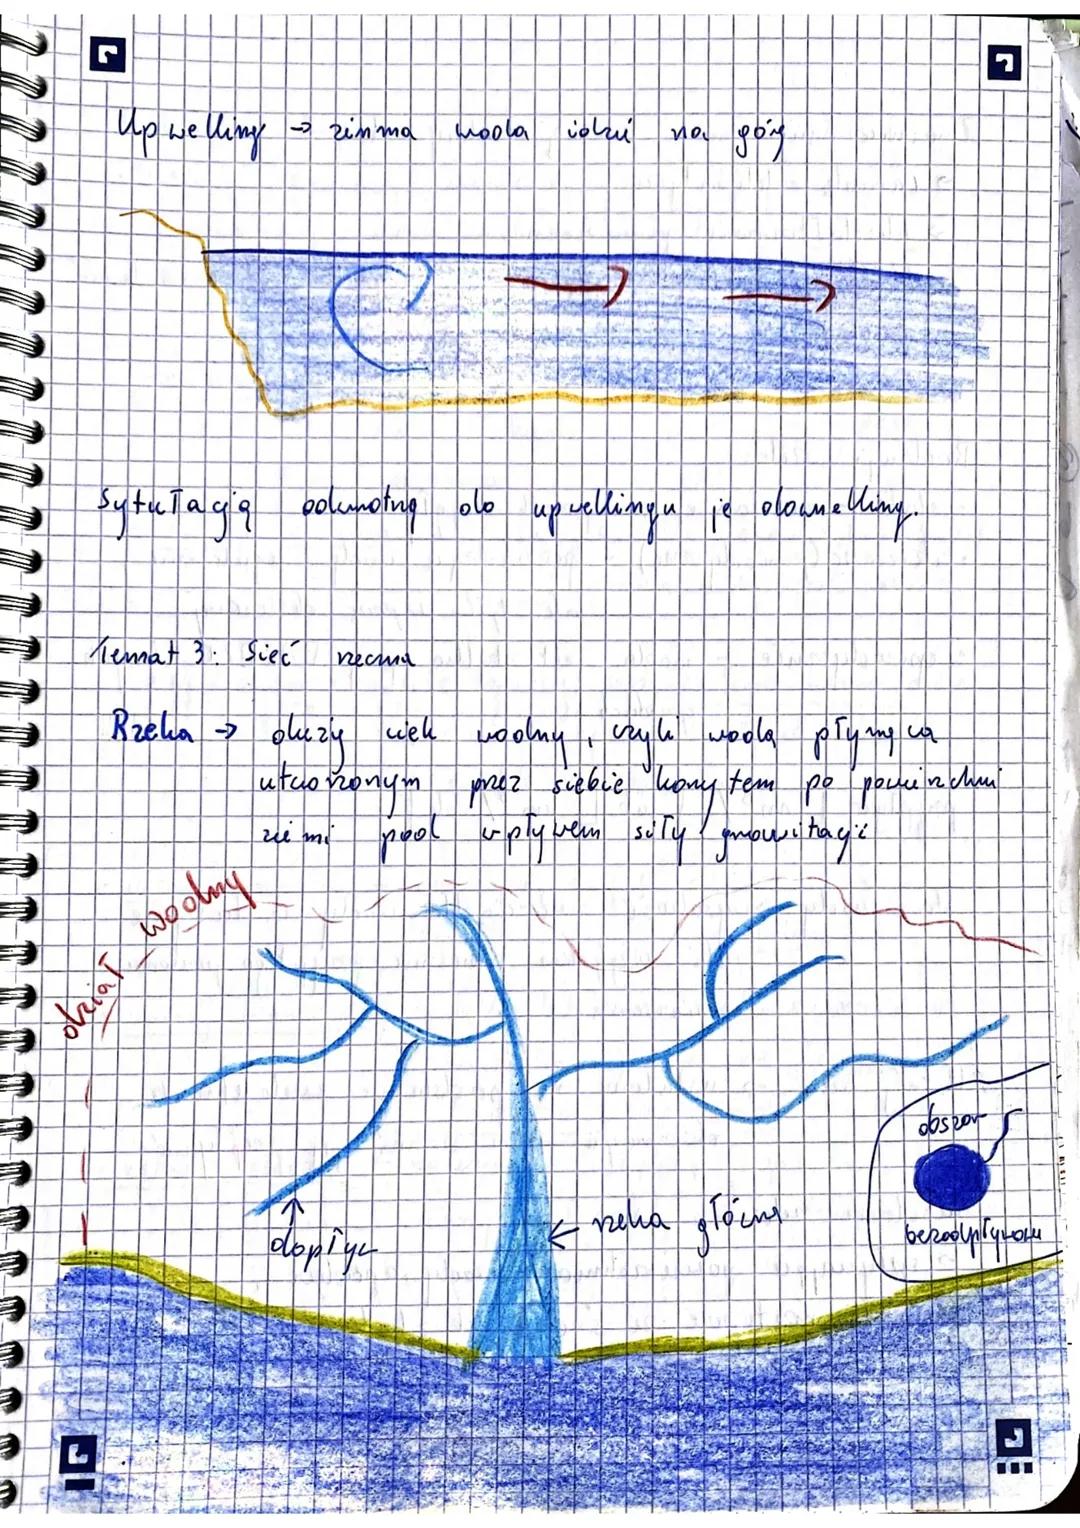 Upwelling → zimna woda idzie na górę
Sytułacją odwrotną do upwellingu je downelling.
Temat 3: Sieć rzeczna
Rzeka → duży ciek wodny, czyli woda płynąca
utworzonym przez siebie korytem po powierzchni
ziemi pod wpływem siły grawitacji
dział wodny
obszar
bezodpływowy
rzeka główna
dopływ